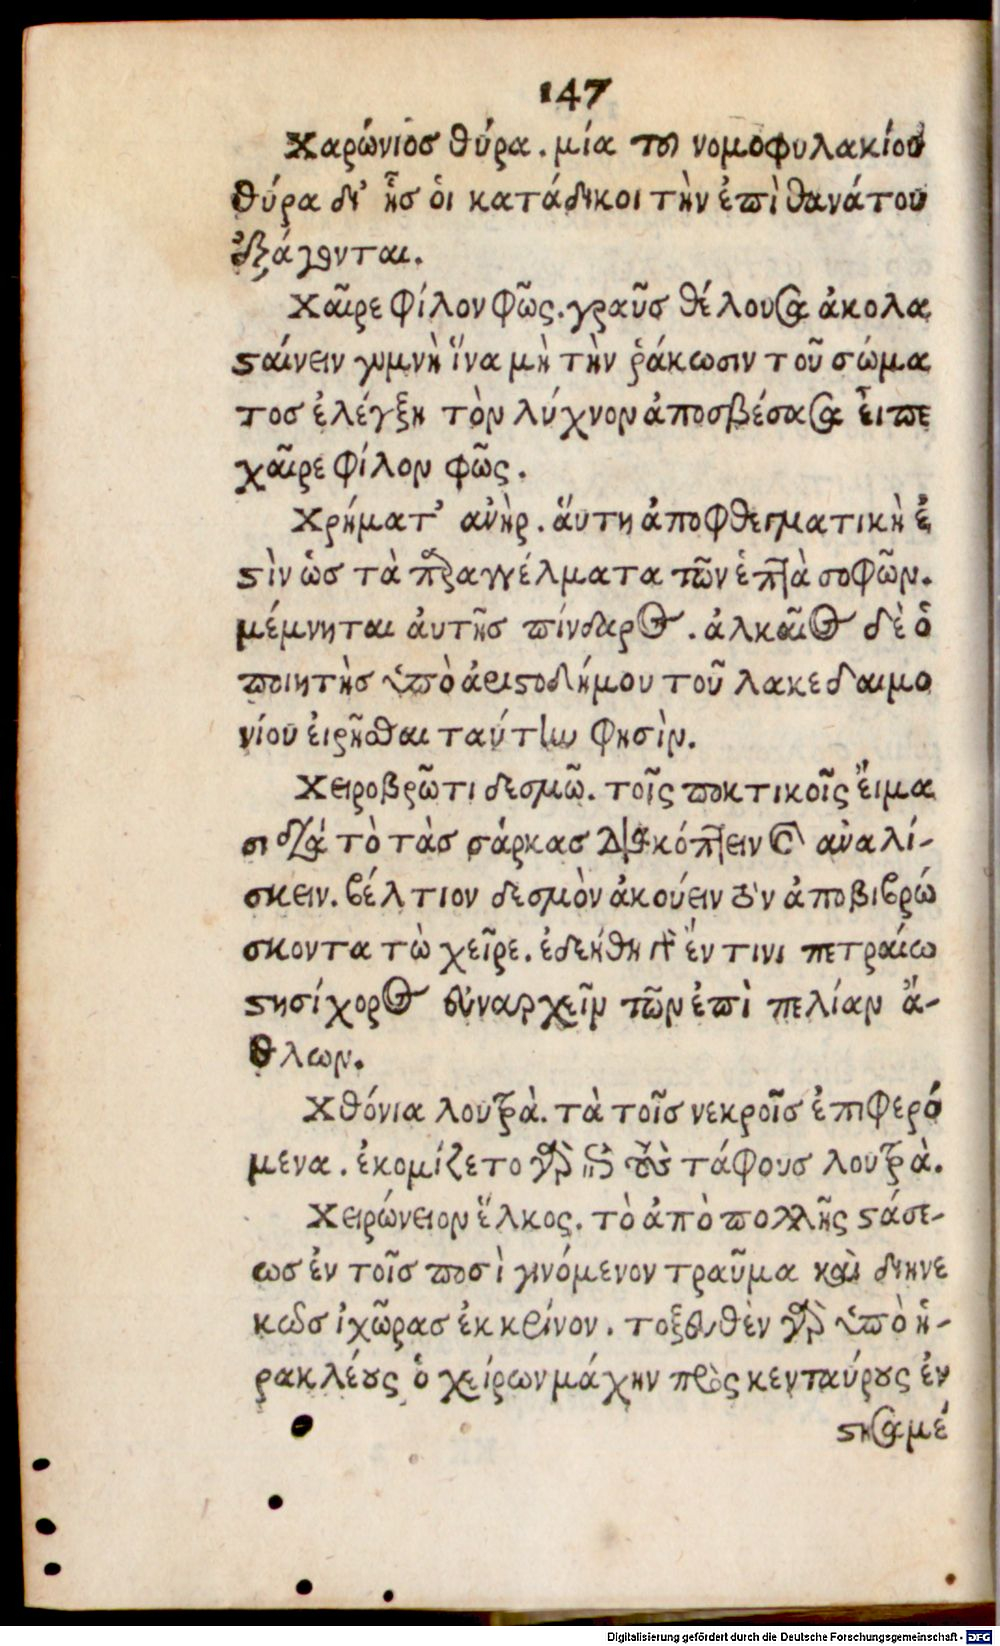 147
Χαρώνιος θύρα. μία τοῦ νομοφυλακίου
θύρα δι' ἧς ὁι κατάδικοι τὴν ἐπὶ θανάτου
ἐξάγονται.
Χαῖρε φίλον φῶς. γραῦς θέλουσα ἀκολα
σαίνειν γυμνὴ ἵνα μὴ τὴν ῥάκωσιν τοῦ σώμα
τος ἐλέγξη τὸν λύχνον ἀποσβέσασα εἶιπε
χαῖρε φίλον φῶς.
Χρήματ' ἀνὴρ. ἅυτη ἀποφθεγματικὴ ἐ
στὶν ὡς τὰ παραγγέλματα τῶν ἑπτὰ σοφῶν.
μέμνηται ἀυτῆς πίνδαρος. ἀλκαῖος δὲ ὁ
ποιητὴς ὑπὸ ἀριστοδήμου τοῦ λακεδαιμο
νίου ἐιρῆσθαι ταύτην φησὶν.
Χειροβρῶτι δεσμῶ. τοῖς πυκτικοῖς ἔιμα
σι διὰ τὸ τὰς σάρκας διακόπτειν καὶ ἀναλί-
σκειν. βέλτιον δεσμὸν ἀκούειν τὸν ἀποβιβρώ
σκοντα τὼ χεῖρε. ἐδεήθη γὰρ ἔν τινι πετραίω
στησίχορος συναρχεῖν τῶν ἐπὶ πελίαν ἄ-
θλων.
Χθόνια λουτρὰ. τὰ τοῖς νεκροῖς ἐπιφερό
μενα. ἐκομίζετο γὰρ ἐπὶ τοὺς τάφους λουτρὰ.
Χειρώνειον ἕλκος. τὸ ἀπὸ πολλῆς στάσε-
ως ἐν τοῖς ποσὶ γινόμενον τραῦμα καὶ διηνε
κῶς ἰχῶρας ἐκκρίνον. τοξευθὲν γὰρ ὑπὸ ἡ-
ρακλέους ὁ χείρων μάχην πρὸς κενταύρους ἐν
στησαμέ
Digitalisierung gefördert durch die Deutsche Forschungsgemeinschaft - DFG